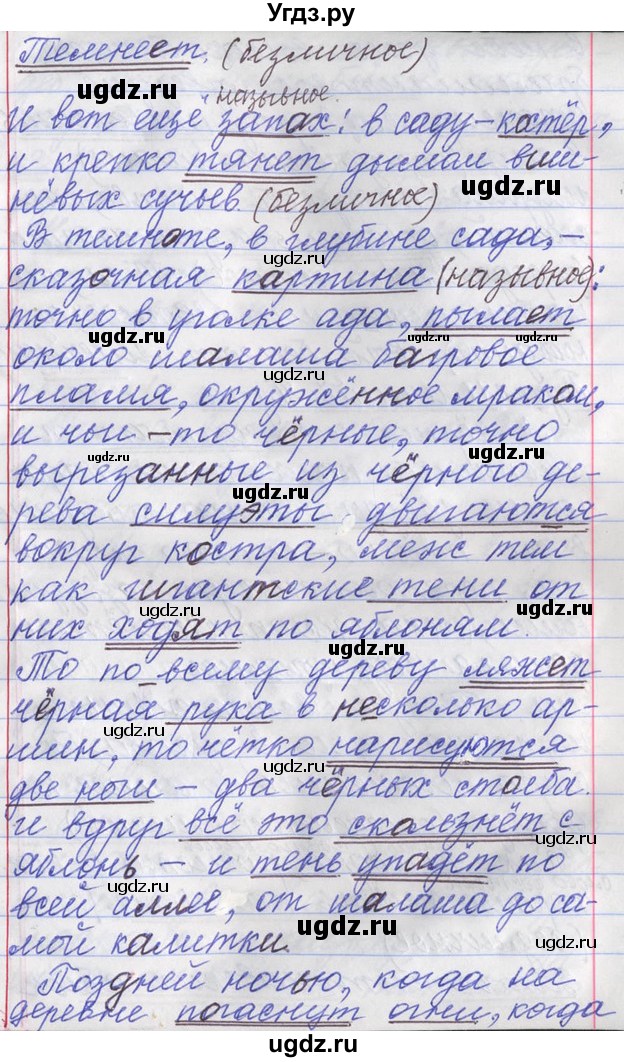 Угдз.ру
Темнеет. (безличное)
назывное.
И вот ещё запах: в саду – костёр,
и крепко тянет дымом виш-
нёвых сучьев (безличное)
В темноте, в глубине сада, –
сказочная картина (назывное):
точно в уголке ада, пылает
около шалаша багровое
пламя, окружённое мраком,
и чьи-то чёрные, точно
вырезанные из чёрного де-
рева силуэты двигаются
вокруг костра, меж тем
как гигантские тени от
них ходят по яблоням.
То по всему дереву ляжет
чёрная рука в несколько ар-
шин, то чётко нарисуются
две ноги – два чёрных столба.
И вдруг всё это скользнёт с
яблонь – и тень упадёт по
всей аллее, от шалаша до са-
мой калитки.
Поздней ночью, когда на
деревне погаснут огни, когда